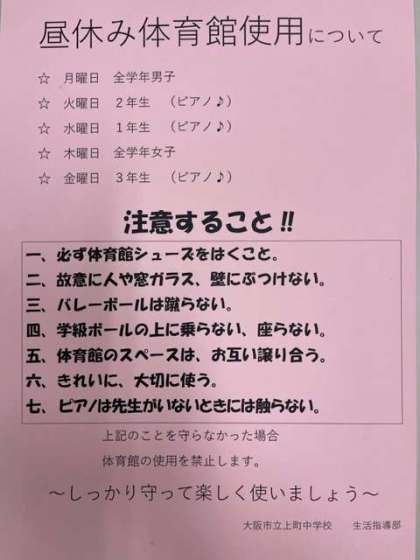 昼休み体育館使用について
☆ 月曜日 全学年男子
☆ 火曜日 2年生 (ピアノ♪)
☆ 水曜日 1年生 (ピアノ♪)
☆ 木曜日 全学年女子
☆ 金曜日 3年生 (ピアノ♪)
注意すること!!
一、必ず体育館シューズをはくこと。
二、故意に人や窓ガラス、壁にぶつけない。
三、バレーボールは蹴らない。
四、学級ボールの上に乗らない、座らない。
五、体育館のスペースは、お互い譲り合う。
六、きれいに、大切に使う。
七、ピアノは先生がいないときには触らない。
上記のことを守らなかった場合
体育館の使用を禁止します。
~しっかり守って楽しく使いましょう~
大阪市立上町中学校 生活指導部